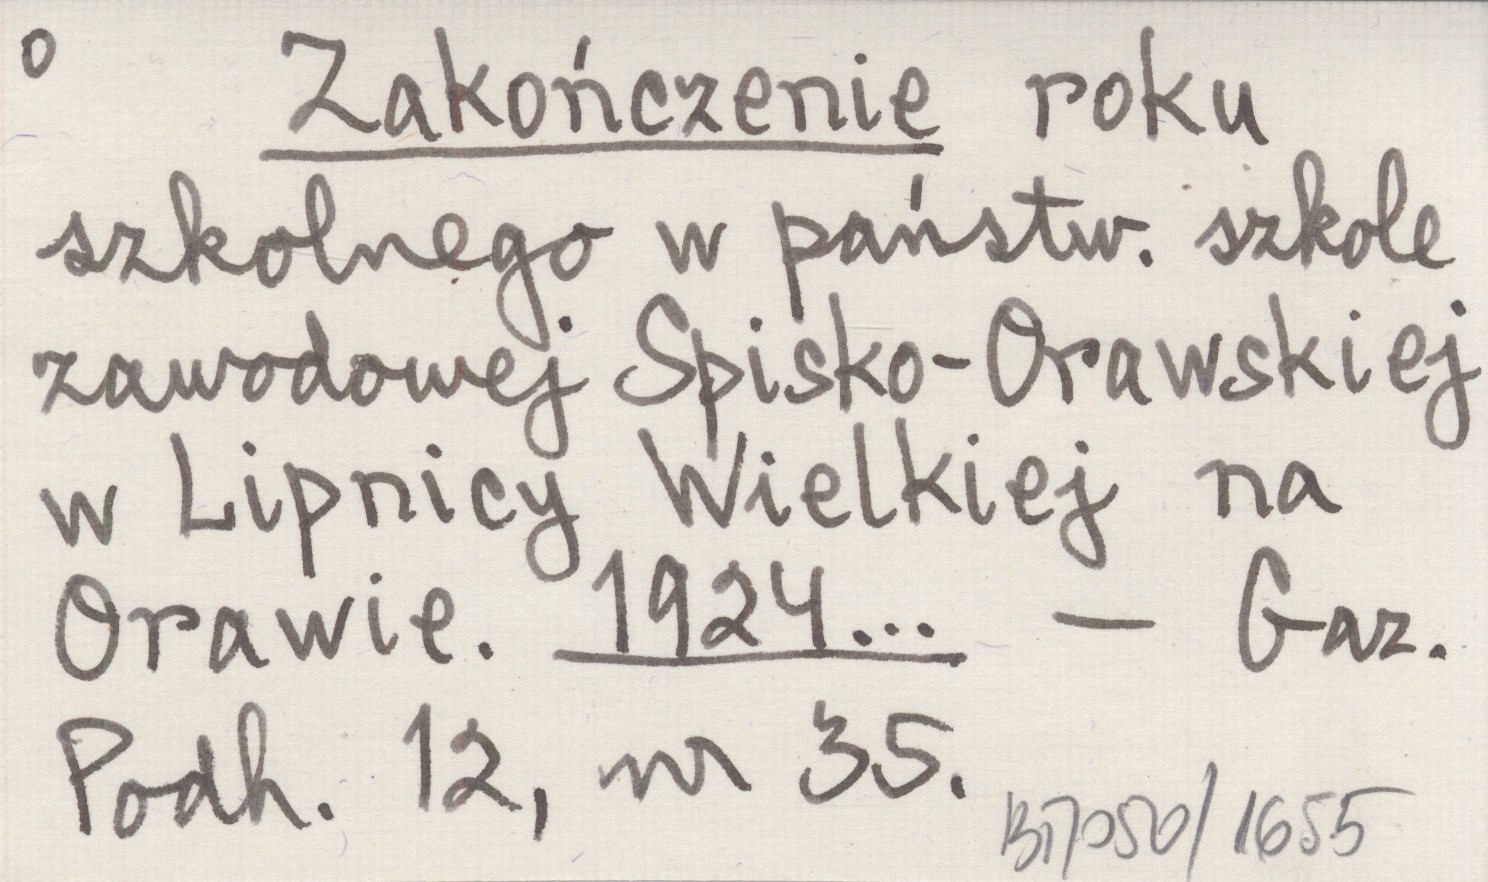 o Zakończenie roku
szkolnego w państw. szkole
zawodowej Spisko-Orawskiej
w Lipnicy Wielkiej na
Orawie. 1924... – Gaz.
Podh. 12, nr 35.
/1655